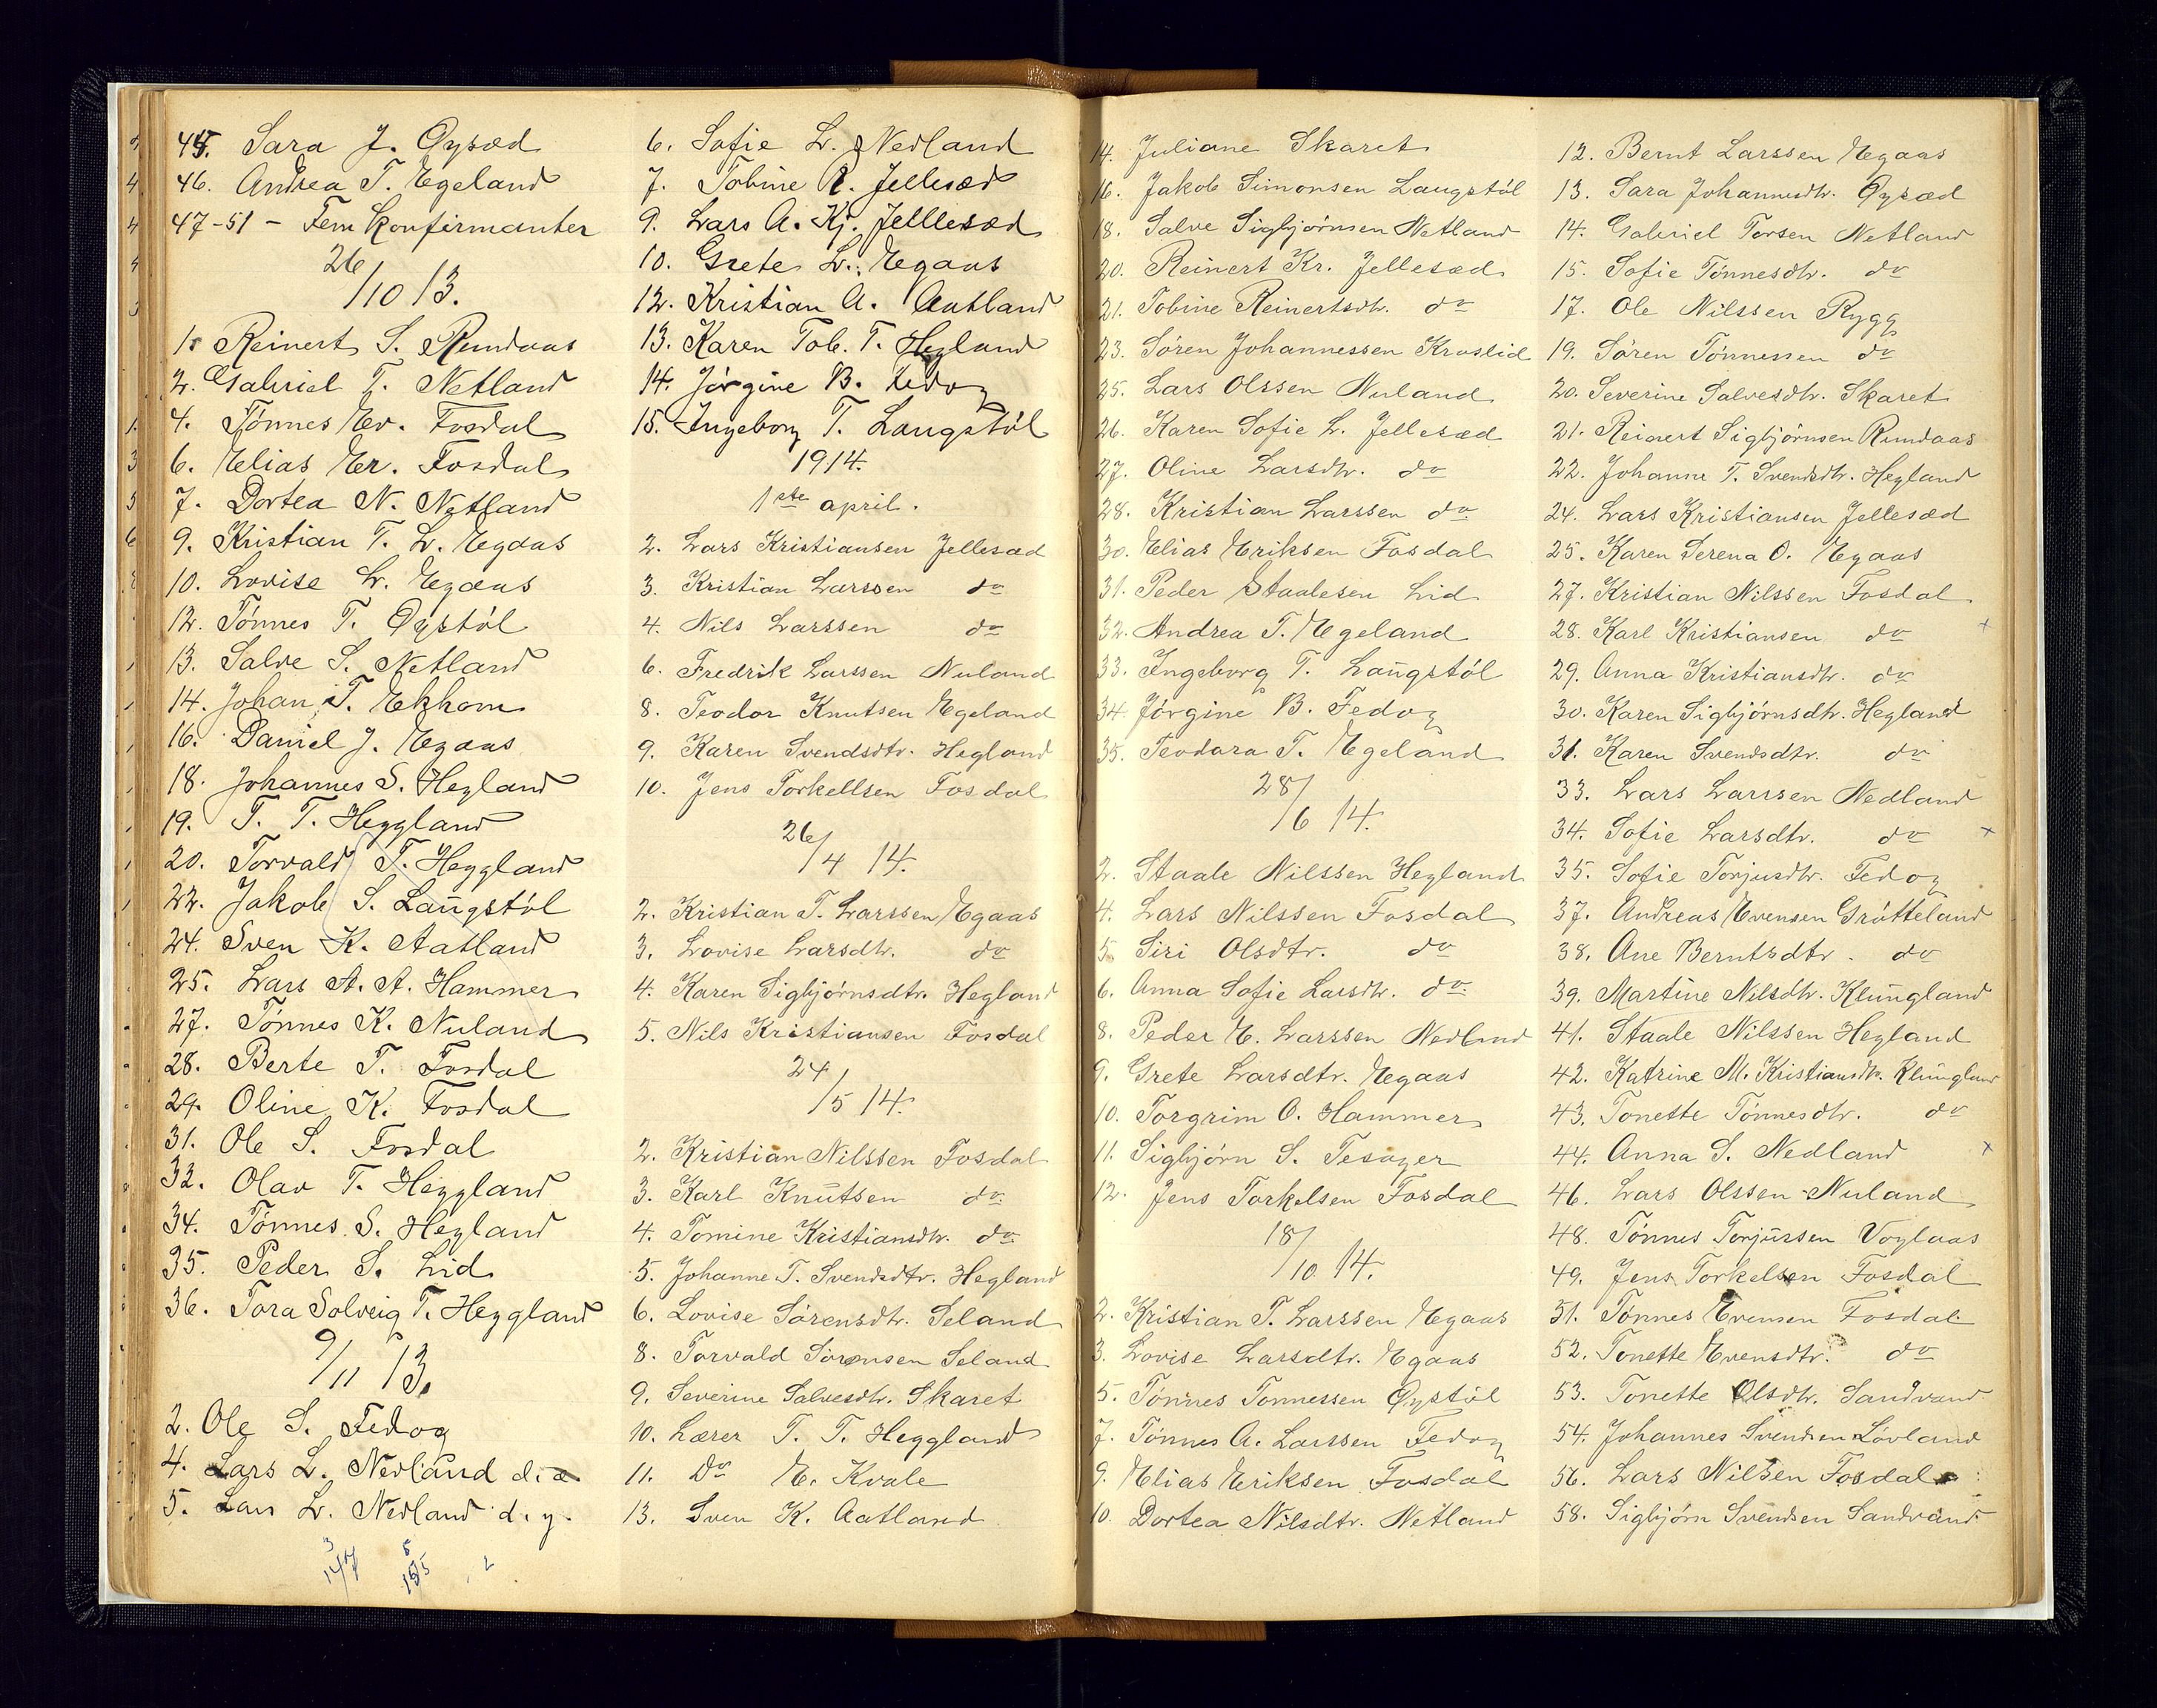 45. Sara J. Øysæd
46. Andrea T. Egeland
47-51 - Fem konfirmanter
26/10 13.
1. Reinert S. Rundaas
2. Gabriel T. Netland
4. Tønnes Ev. Fosdal
6. Elias Er. Fosdal
7. Dortea N. Netland
9. Kristian T. L. Egaas
10. Lovise L. Egaas
12. Tønnes T. Øystöl
13. Salve S. Netland
14. Johan T. Ekhom
16. Daniel J. Egaas
18. Johannes S. Hegland
19. T. T. Heggland
20. Torvald T. Heggland
22. Jakob S. Langstöl
24. Sven K. Aatland
25. Lars A. A. Hammer
27. Tønnes K. Nuland
28. Berte T. Fosdal
29. Oline K. Fosdal
31. Ole S. Fosdal
32. Olav T. Heggland
34. Tønnes S. Hegland
35. Peder S. Lid
36. Tora Solveig T. Heggland
9/11 13.
2. Ole S. Fedog
4. Lars L. Nedland d. æ
5. Lars L. Nedland d. y.
6. Sofie L. Nedland
7. Tobine R. Jellesæd
9. Lars A. Kj. Jellesæd
10. Grete L. Egaas
12. Kristian A. Aatland
13. Karen Tob. T. Hegland
14. Jörgine B. Fedog
15. Ingeborg T. Langstöl
1914.
1ste april.
2. Lars Kristiansen Jellesæd
3. Kristian Larssen do
4. Nils Larssen do
6. Fredrik Larssen Nuland
8. Teodor Knutsen Egeland
9. Karen Svendsdtr. Hegland
10. Jens Torkellsen Fosdal
26/4 14.
2. Kristian T. Larssen Egaas
3. Lovise Larsdtr. do
4. Karen Sigbjörnsdtr. Hegland
5. Nils Kristiansen Fosdal
24/5 14.
2. Kristian Nilssen Fosdal
3. Karl Knutsen do
4. Tomine Kristiansdtr. do
5. Johanne T. Svendsdtr. Hegland
6. Lovise Sörensdtr. Seland
8. Torvald Sörensen Seland
9. Severine Salvesdtr. Skaret
10. Lærer T. T. Heggland
11. Do E. Kvale
13. Sven K. Aatland
14. Juliane Skaret
16. Jakob Simonsen Langstöl
18. Salve Sigbjörnsen Netland
20. Reinert Kr. Jellesæd
21. Tobine Reinertsdtr. do
23. Sören Johannessen Kroslid
25. Lars Olssen Nuland
26. Karen Sofie L. Jellesæd
27. Oline Larsdtr. do
28. Kristian Larssen do
30. Elias Eriksen Fosdal
31. Peder Staalesen Lid
32. Andrea T. Egeland
33. Ingeborg T. Langstöl
34. Jörgine B. Fedog
35. Teodara T. Egeland
28/6 14.
2. Staale Nilssen Hegland
4. Lars Nilssen Fosdal
5. Siri Olsdtr. do
6. Anna Sofie Larsdtr. do
8. Peder E. Larssen Nedland
9. Grete Larsdtr. Egaas
10. Torgrim O. Hammer
11. Sigbjörn S. Tesager
12. Jens Torkelsen Fosdal
18/10 14.
2. Kristian T. Larssen Egaas
3. Lovise Larsdtr. Egaas
5. Tönnes Tönnessen Øystöl
7. Tönnes A. Larssen Fedog
9. Elias Eriksen Fosdal
10. Dortea Nilsdtr. Netland
12. Bernt Larssen Egaas
13. Sara Johannesdtr. Øysæd
14. Gabriel Torsen Netland
15. Sofie Tönnesdtr. do
17. Ole Nilssen Rygg
19. Sören Tönnessen do
20. Severine Salvesdtr. Skaret
21. Reinert Sigbjörnsen Rundaas
22. Johanne T. Svendsdtr. Hegland
24. Lars Kristiansen Jellesæd
25. Karen Serena O. Egaas
27. Kristian Nilssen Fosdal
28. Karl Kristiansen do +
29. Anna Kristiansdtr. do
30. Karen Sigbjörnsdtr. Hegland
31. Karen Svendsdtr. do
33. Lars Larssen Nedland
34. Sofie Larsdtr. do +
35. Sofie Torjusdtr. Fedog
37. Andreas Evensen Grötteland
38. Ane Berntsdtr. do
39. Martine Nilsdtr. Klungland
41. Staale Nilssen Hegland
42. Katrine M. Kristiansdtr. Klungland
43. Tonette Tönnesdtr. do
44. Anna S. Nedland x
46. Lars Olssen Nuland
48. Tönnes Torjussen Voglaas
49. Jens Torkelsen Fosdal
51. Tönnes Evensen Fosdal
52. Tonette Evensdtr. do
53. Tonette Olsdtr. Sandvand
54. Johannes Svendsen Lövland
56. Lars Nilsen Fosdal
58. Sigbjörn Svendsen Sandvand